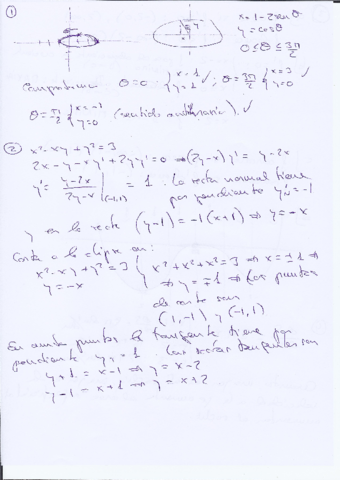 ①
x = 1 - 2 sen θ
y = cos θ
0 ≤ θ ≤ 3π/2
θ = 0 : { x = 1 y = 1 ✓ ; θ = 3π/2 { x = 3 y = 0 ✓
θ = π/2 { x = -1 y = 0 (sentido antihorario). ✓
② x² - xy + y² = 3
2x - y - xy' + 2yy' = 0 ⇒ (2y - x) y' = y - 2x
y' = (y - 2x)/(2y - x) |(-1,1) = 1. La recta normal tiene
por pendiente y'_N = -1
y es la recta (y - 1) = -1 (x + 1) ⇒ y = -x
Corta a la elipse en:
x² - xy + y² = 3 } x² + x² + x² = 3 ⇒ x = ±1 ⇒
y = -x ⇒ y = ∓1 ⇒ Los puntos
de corte son
(1, -1) y (-1, 1)
En ambos puntos la tangente tiene por
pendiente y' = 1. Las rectas tangentes son
y + 1 = x - 1 ⇒ y = x - 2
y - 1 = x + 1 ⇒ y = x + 2